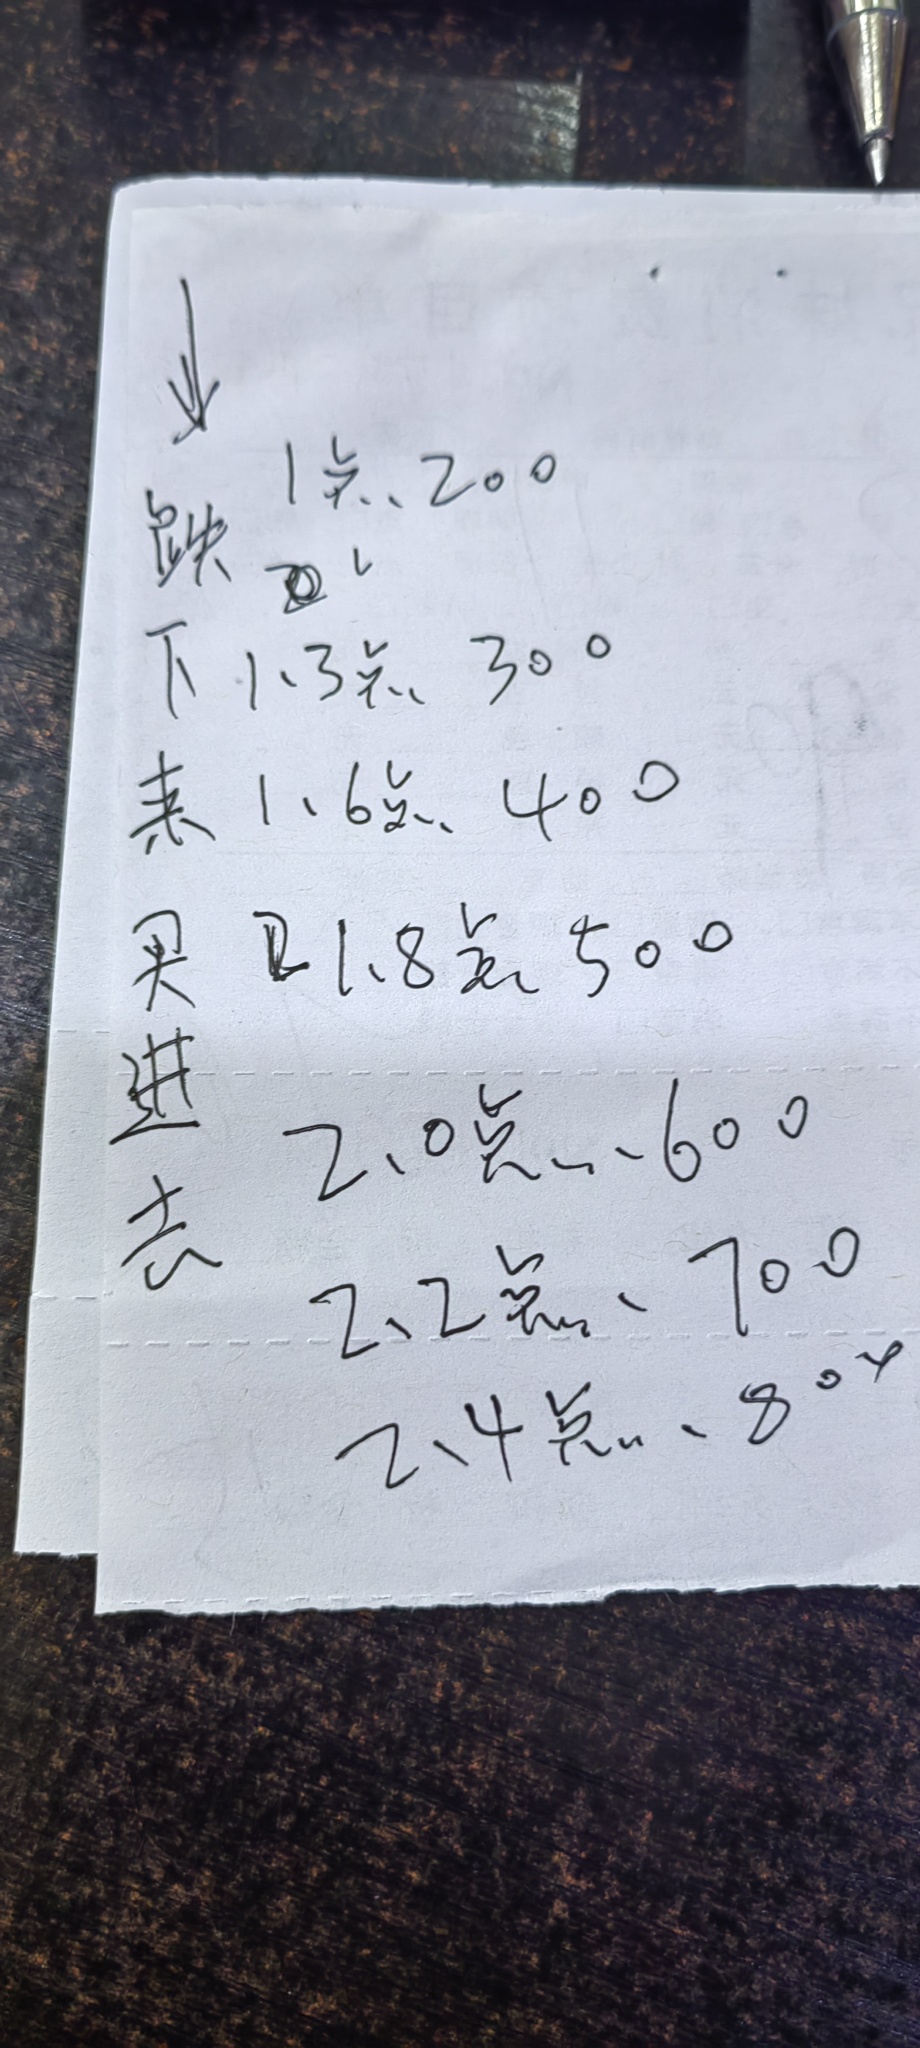 ↓
跌下来买进去
1点、200
1.3点、300
1.6点、400
1.8点、500
2.0点、600
2.2点、700
2.4点、80